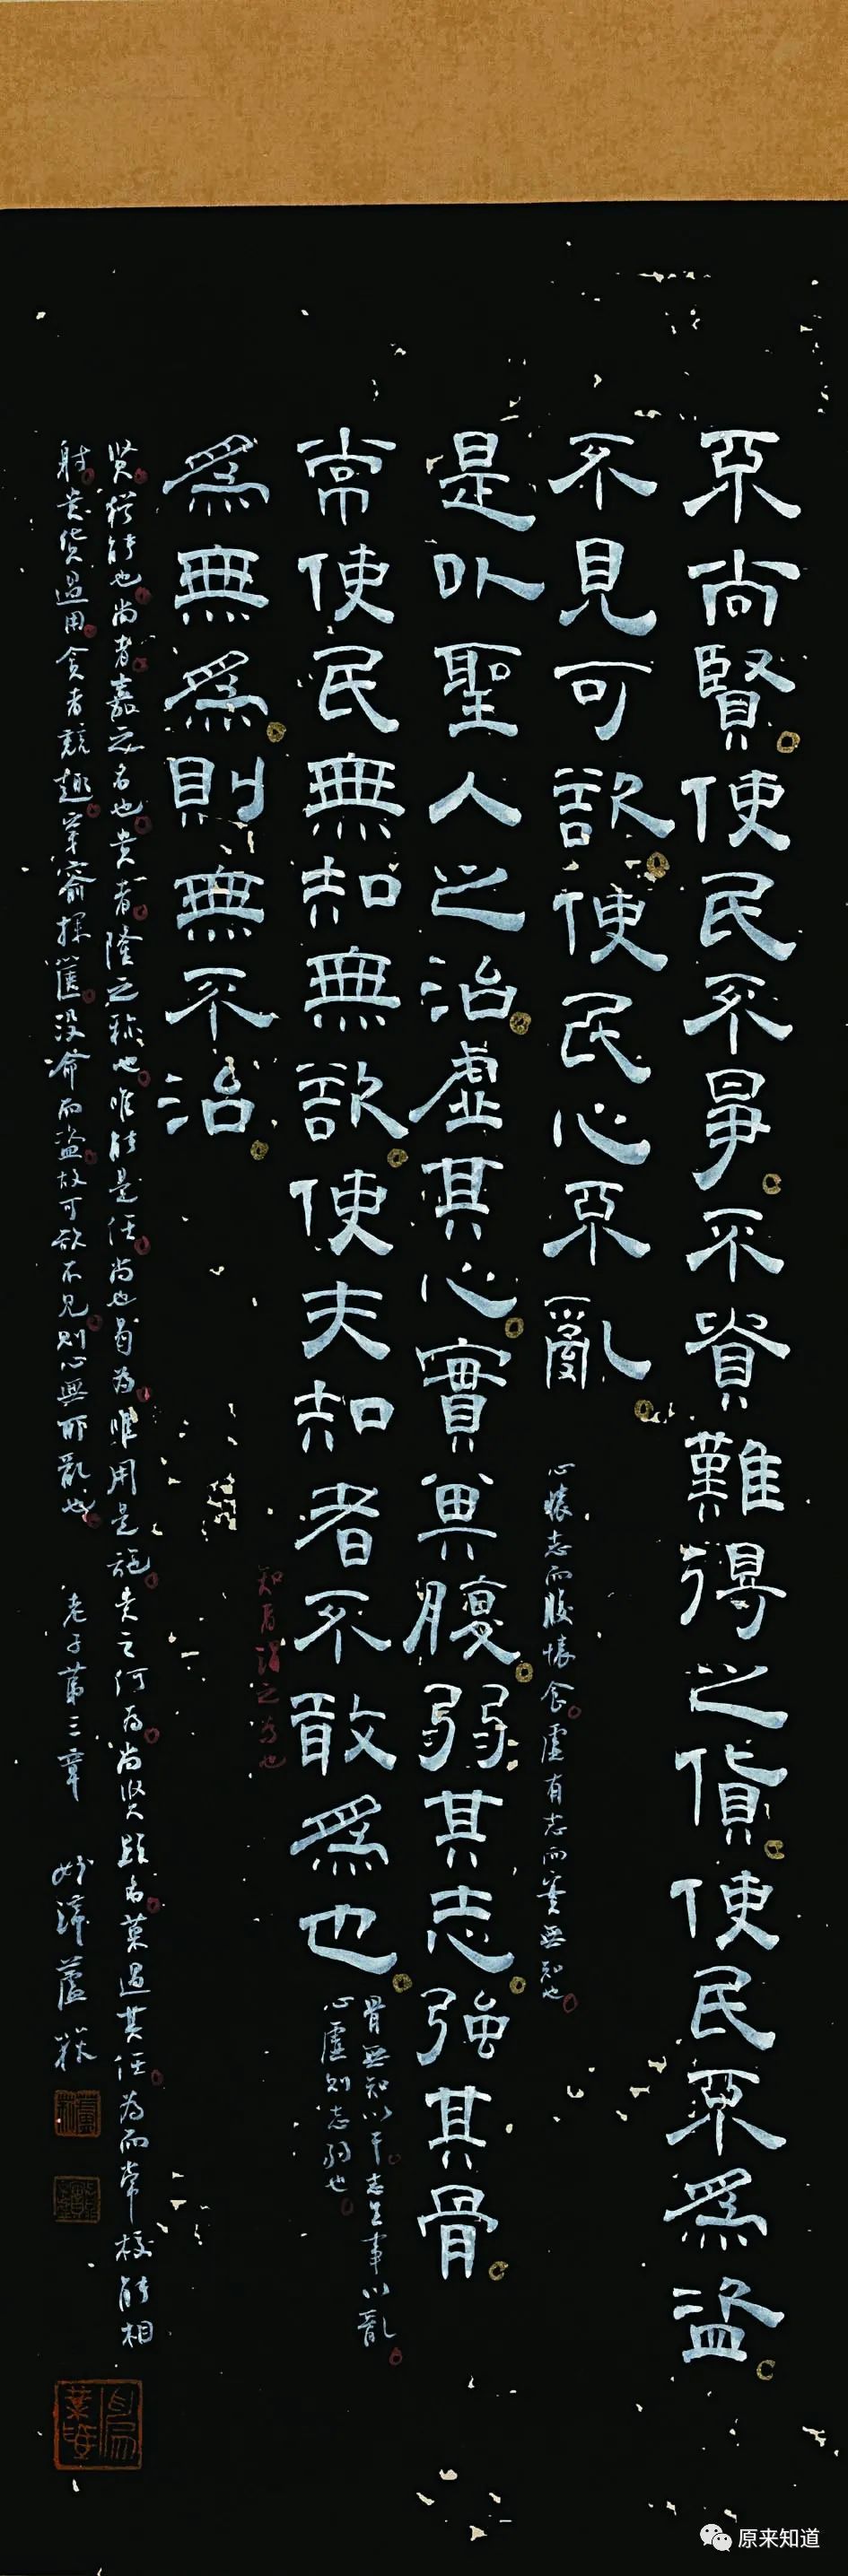 不尚賢使民不爭不貴難得之貨使民不爲盜
不見可欲使民心不亂
心懷志而腹懷食虛有志而實無知也
是以聖人之治虛其心實其腹弱其志強其骨
骨無知以干志生事以亂
心虛則志弱也
常使民無知無欲使夫知者不敢爲也
知者謂之爲也
爲無爲則無不治
賢猶能也尚者嘉之名也貴者隆之稱也唯能是任尚也曷為唯用是施貴之何為尚賢顯名榮過其任為而常校能相
射貴貨過用貪者競趣穿窬探篋沒命而盜故可欲不見則心無所亂也
老子第三章
原来知道